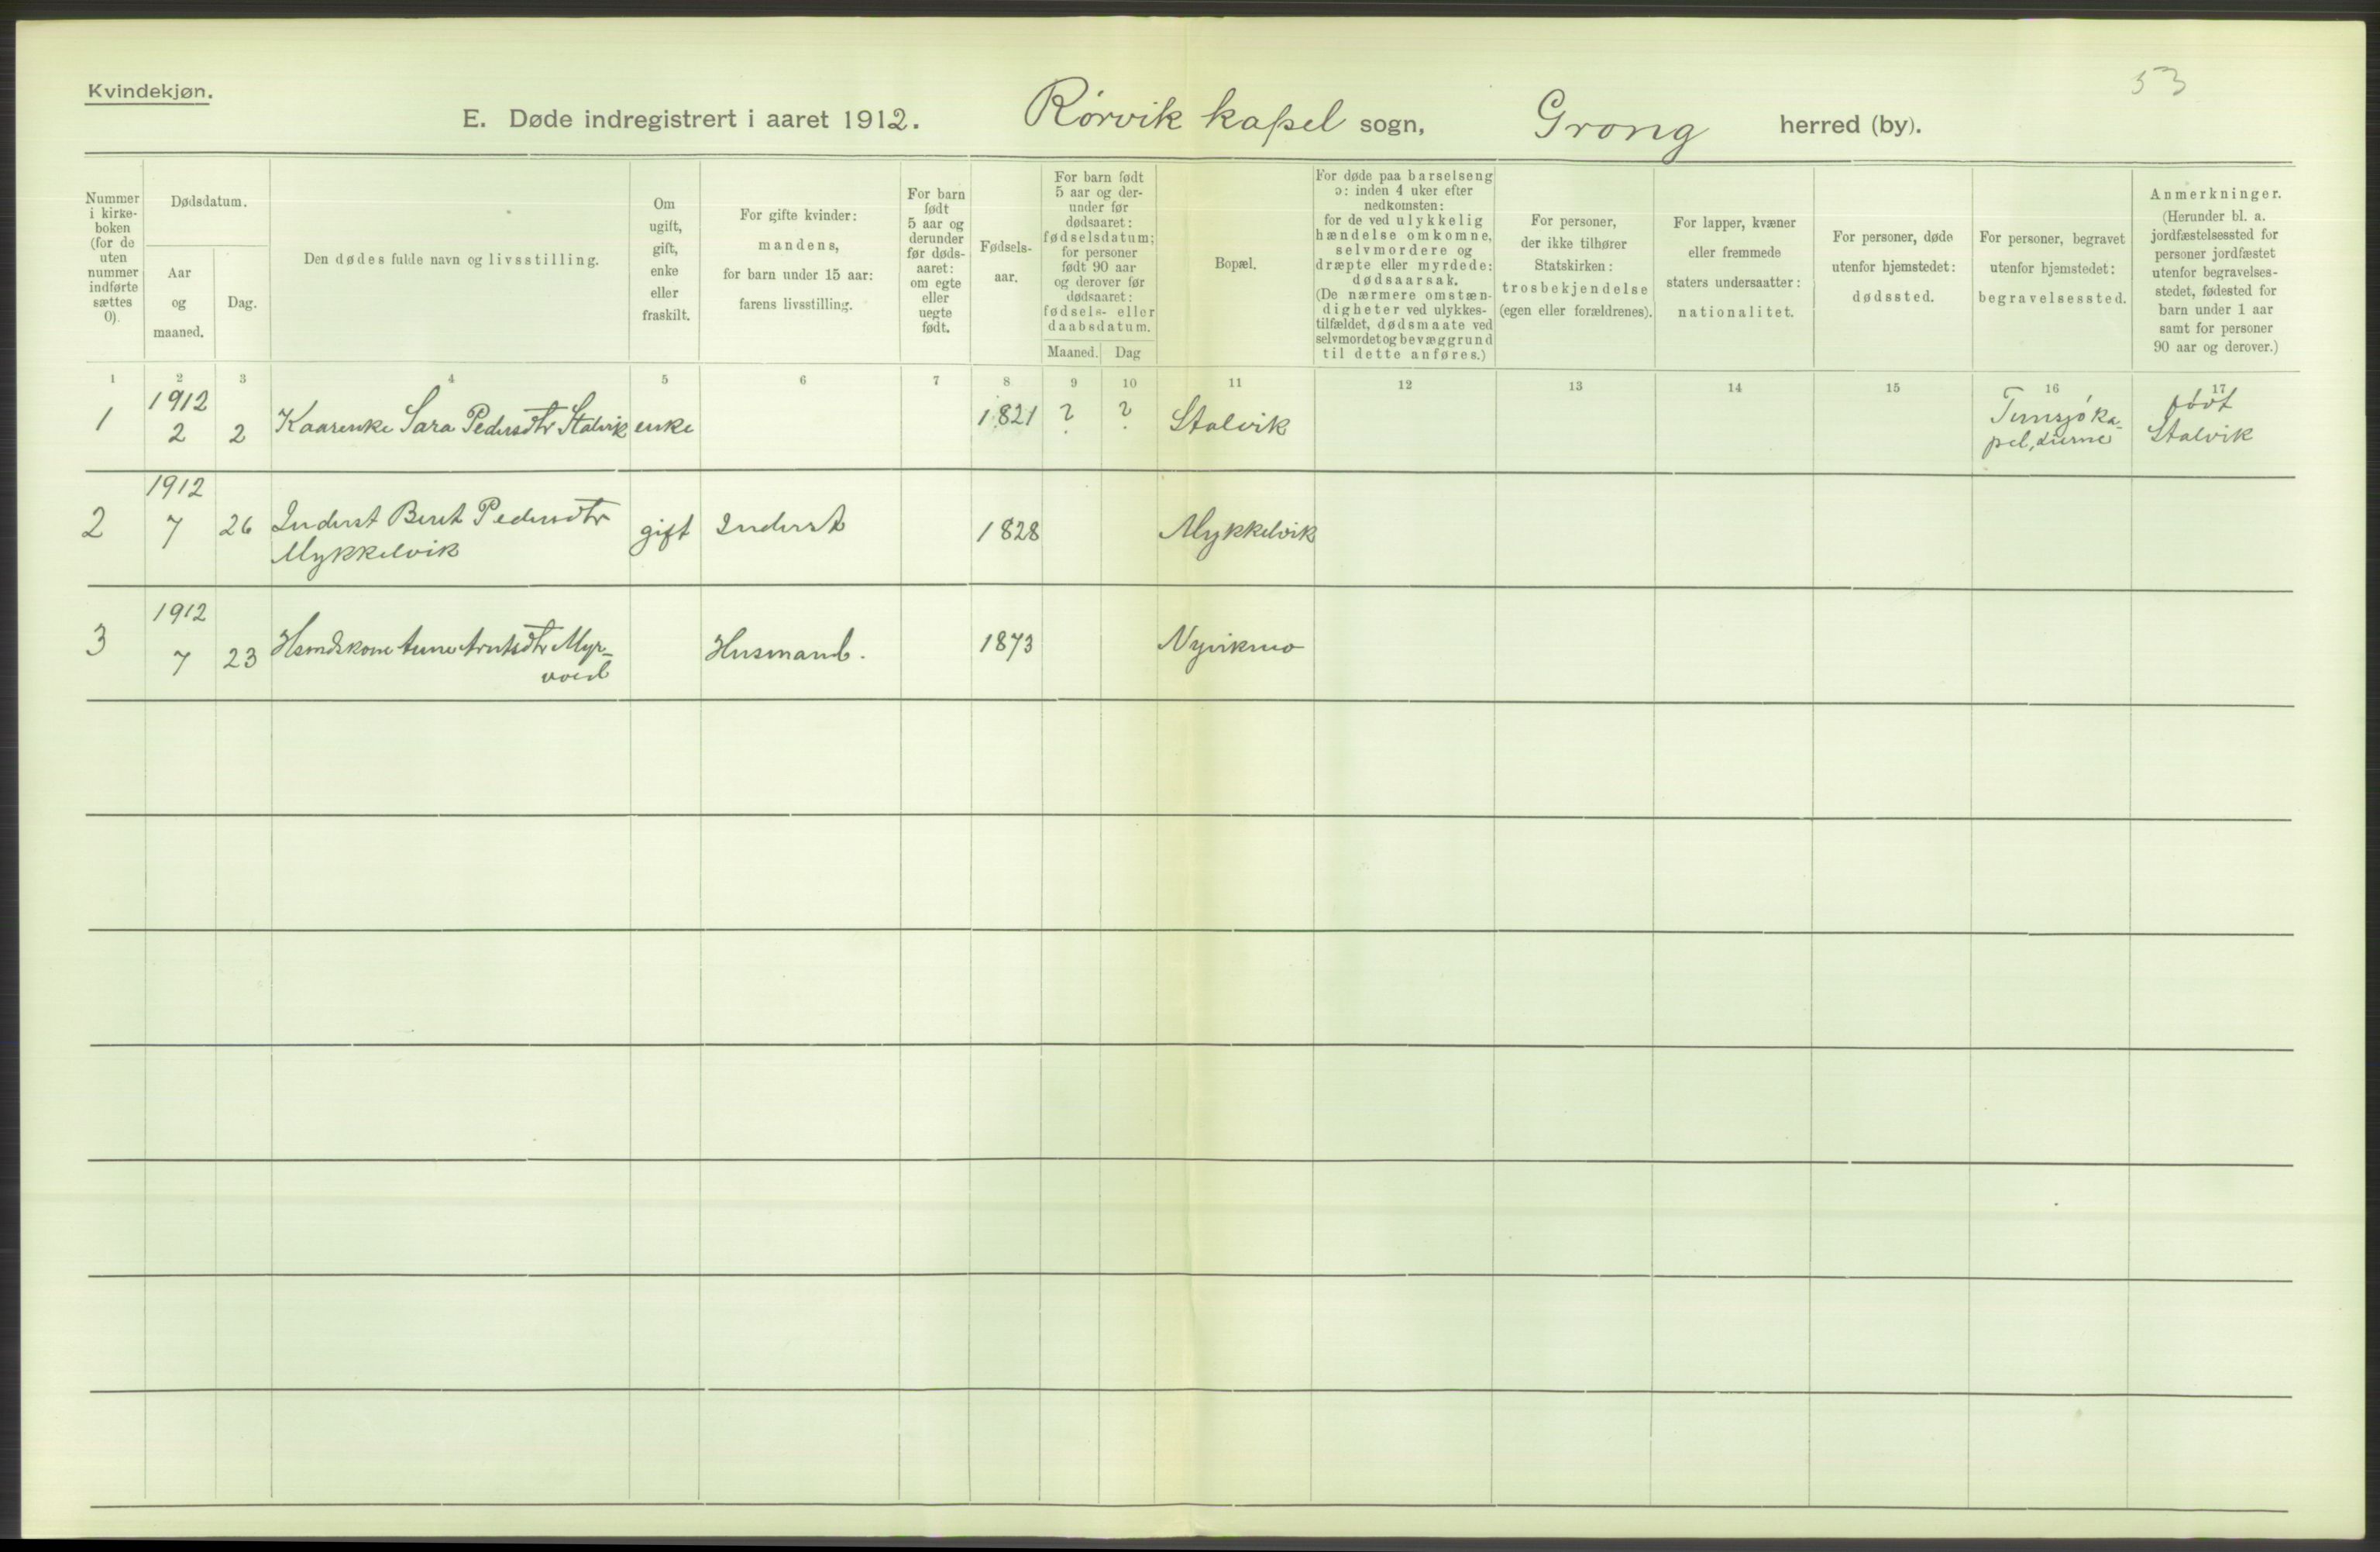 Kvindekjøn.
53
E. Døde indregistrert i aaret 1912. Rörvik kapel sogn, Grong herred (by).
Nummer
i kirke-
boken
(for de
uten
nummer
indførte
sættes
0).
Dødsdatum.
Aar
og
maaned.
Dag.
Den dødes fulde navn og livsstilling.
Om
ugift,
gift,
enke
eller
fraskilt.
For gifte kvinder:
mandens,
for barn under 15 aar:
farens livsstilling.
For barn
født
5 aar og
derunder
før døds-
aaret:
om egte
eller
uegte
født.
Fødsels-
aar.
For barn født
5 aar og der-
under før
dødsaaret:
fødselsdatum;
for personer
født 90 aar
og derover før
dødsaaret:
fødsels- eller
daabsdatum.
Maaned. Dag
Bopæl.
For døde paa barselseng
ɔ: inden 4 uker efter
nedkomsten:
for de ved ulykkelig
hændelse omkomne,
selvmordere og
dræpte eller myrdede:
dødsaarsak.
(De nærmere omstæn-
digheter ved ulykkes-
tilfældet, dødsmaate ved
selvmordet og bevæggrund
til dette anføres.)
For personer,
der ikke tilhører
Statskirken:
trosbekjendelse
(egen eller forældrenes).
For lapper, kvæner
eller fremmede
staters undersaatter:
nationalitet.
For personer, døde
utenfor hjemstedet:
dødssted.
For personer, begravet
utenfor hjemstedet:
begravelsessted.
Anmerkninger.
(Herunder bl. a.
jordfæstelsessted for
personer jordfæstet
utenfor begravelses-
stedet, fødested for
barn under 1 aar
samt for personer
90 aar og derover.)
1 2 3 4 5 6 7 8 9 10 11 12 13 14 15 16 17
1 1912 2 2 Kaarenke Sara Pedersdtr Stalvik enke 1821 ? ? Stalvik Tunsjö ka-
pel, født
Stalvik
2 1912 7 26 Inderst Beret Pedersdtr
Mykkelvik gift Inderst 1828 Mykkelvik
3 1912 7 23 Husmands Myr-
vold Husmand. 1873 Nyvikmo